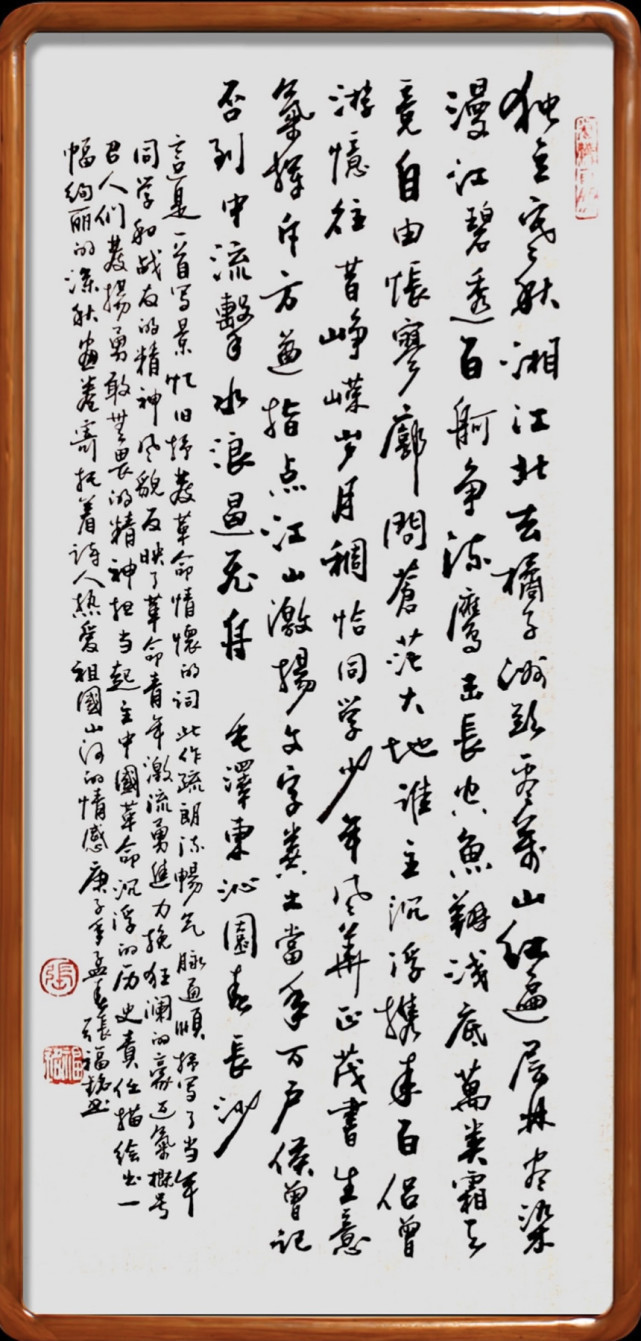 独立寒秋湘江北去橘子洲头看萬山红遍层林尽染
漫江碧透百舸争流鹰击長空魚翔浅底萬类霜天
竞自由怅寥廓問蒼茫大地谁主沉浮携来百侣曾
游憶往昔峥嵘岁月稠恰同学少年风華正茂書生意
氣揮斥方遒指点江山激揚文字粪土當年万户侯曾记
否到中流擊水浪遏飞舟 毛澤東沁園春長沙
这是一首写景忆旧抒發革命情懷的词此作疏朗流暢气脉通順描写了当年
同学和战友的精神风貌反映了革命青年激流勇進力挽狂澜的豪迈氣概号
召人们發揚勇敢無畏的精神担当起主中國革命沉浮的历史責任描绘出一
幅绚丽的深秋畫卷寄托着诗人热爱祖國山河的情感庚子年孟春張福